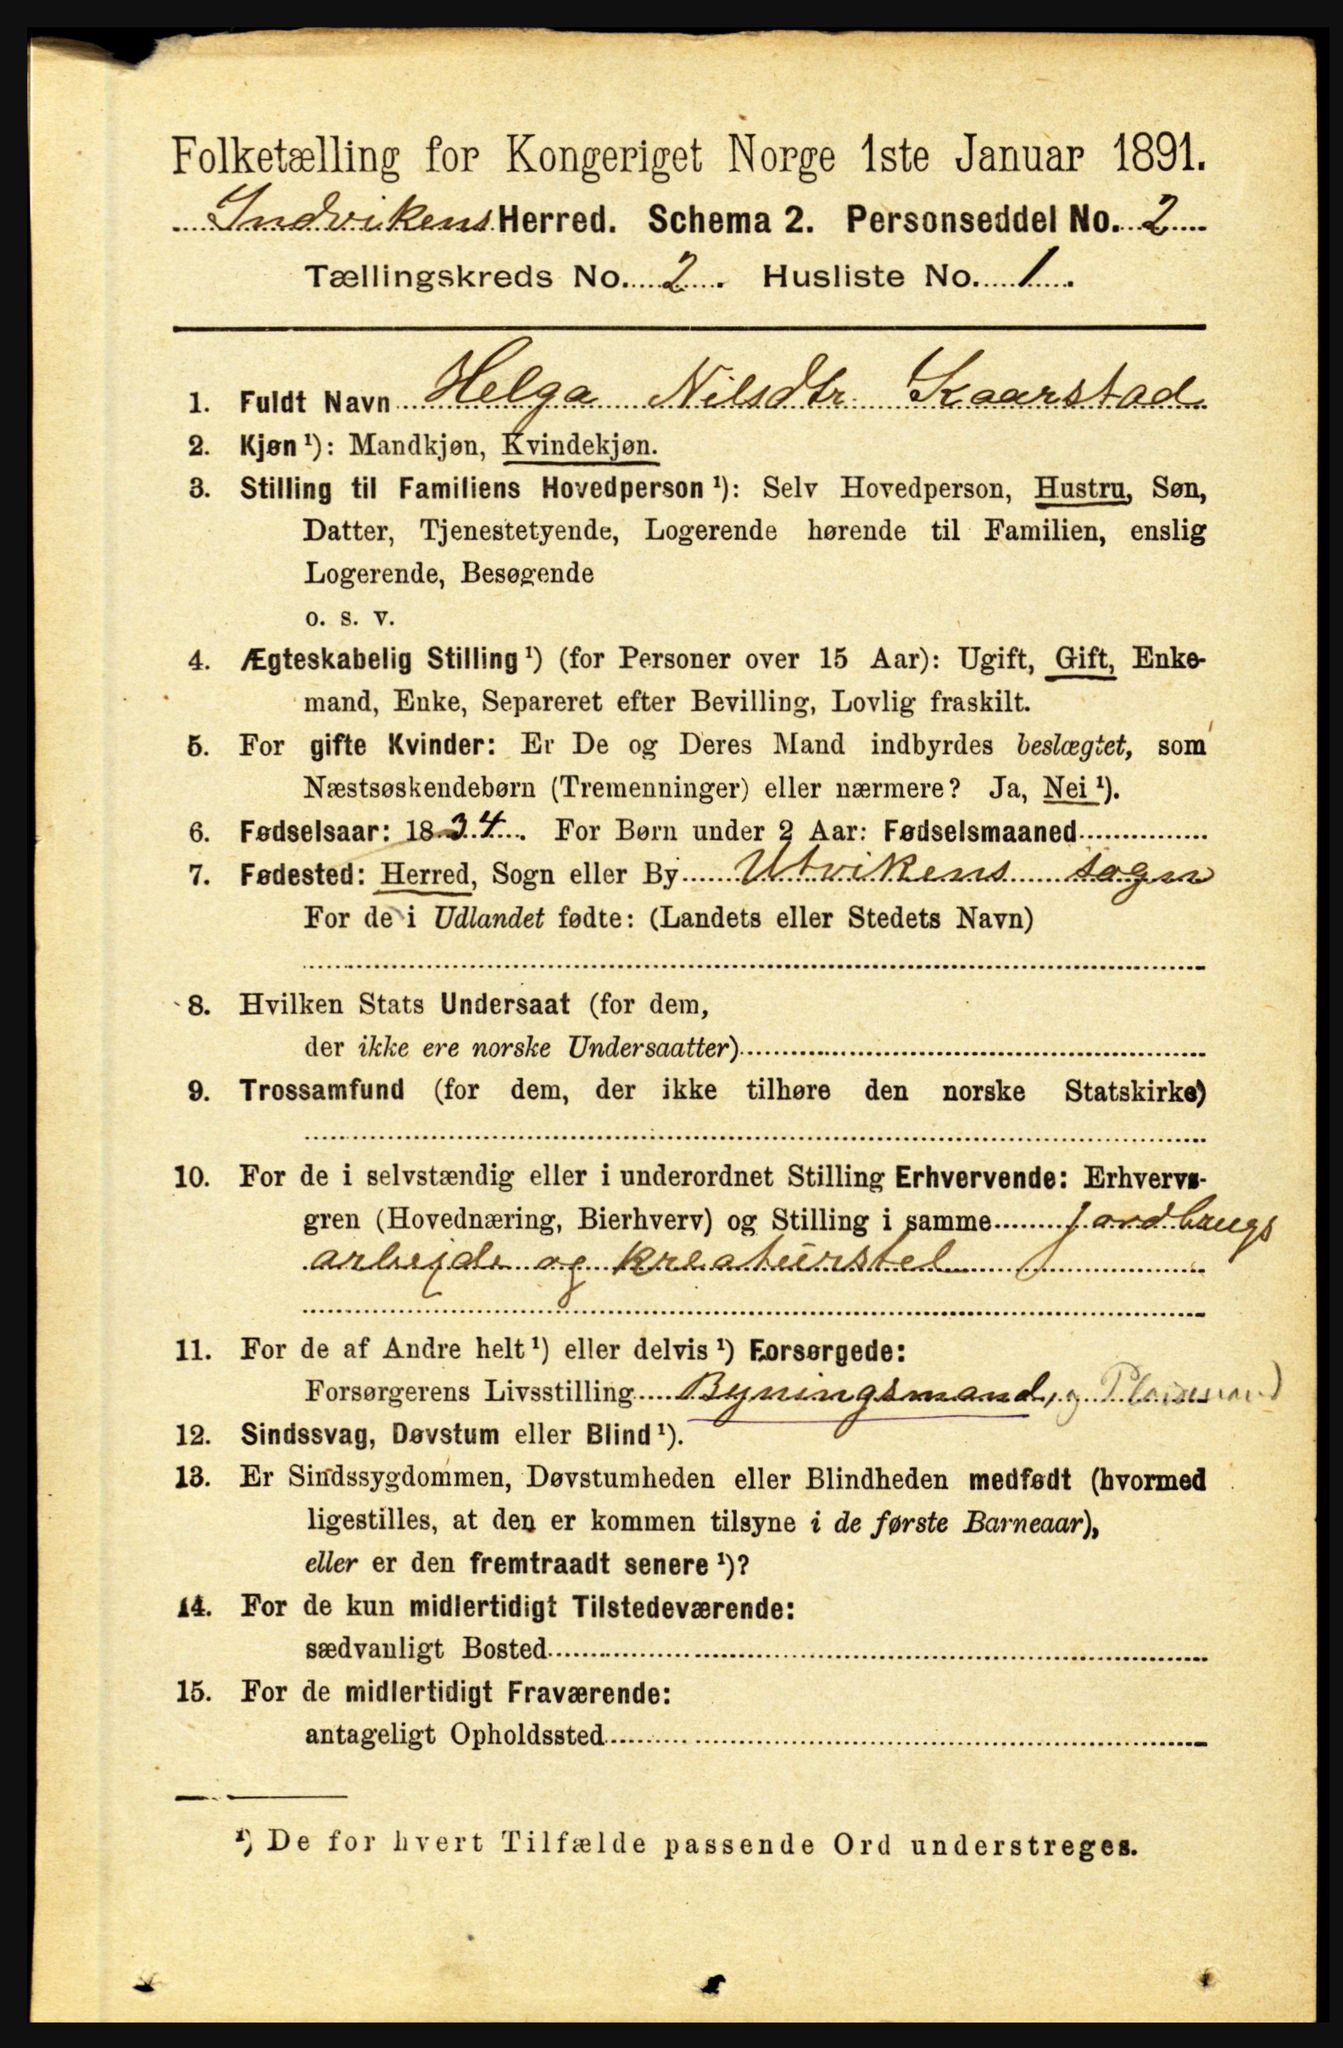 Folketælling for Kongeriget Norge 1ste Januar 1891.
Indvikens Herred. Schema 2. Personseddel No. 2
Tællingskreds No. 2. Husliste No. 1.
1. Fuldt Navn Helga Nilsdtr. Kaarstad
2. Kjøn ¹): Mandkjøn, Kvindekjøn.
3. Stilling til Familiens Hovedperson ¹): Selv Hovedperson, Hustru, Søn,
Datter, Tjenestetyende, Logerende hørende til Familien, enslig
Logerende, Besøgende
o. s. v.
4. Ægteskabelig Stilling ¹) (for Personer over 15 Aar): Ugift, Gift, Enke-
mand, Enke, Separeret efter Bevilling, Lovlig fraskilt.
5. For gifte Kvinder: Er De og Deres Mand indbyrdes beslægtet, som
Næstsøskendebørn (Tremenninger) eller nærmere? Ja, Nei ¹).
6. Fødselsaar: 1834. For Børn under 2 Aar: Fødselsmaaned
7. Fødested: Herred, Sogn eller By Utvikens sogn
For de i Udlandet fødte: (Landets eller Stedets Navn)
8. Hvilken Stats Undersaat (for dem,
der ikke ere norske Undersaatter)
9. Trossamfund (for dem, der ikke tilhøre den norske Statskirke)
10. For de i selvstændig eller i underordnet Stilling Erhvervende: Erhvervs-
gren (Hovednæring, Bierhverv) og Stilling i samme Jordbrugs
arbeide og kreaturstel
11. For de af Andre helt ¹) eller delvis ¹) Forsørgede:
Forsørgerens Livsstilling Byningsmand, og
12. Sindssvag, Døvstum eller Blind ¹).
13. Er Sindssygdommen, Døvstumheden eller Blindheden medfødt (hvormed
ligestilles, at den er kommen tilsyne i de første Barneaar),
eller er den fremtraadt senere ¹)?
14. For de kun midlertidigt Tilstedeværende:
sædvanligt Bosted
15. For de midlertidigt Fraværende:
antageligt Opholdssted
¹) De for hvert Tilfælde passende Ord understreges.